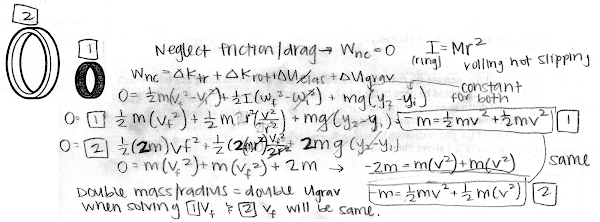 2
1
Neglect friction/drag → Wnc = 0 I = Mr²
(ring) rolling not slipping
Wnc = ΔKtr + ΔKrot + ΔUelas + ΔUgrav
constant for both
0 = ½m(vf² - vi²) + ½I(ωf² - ωi²) + mg(y2 - yi)
0 = 1 ½m(vf²) + ½m r²(v²/r²) + mg(y2 - yi) - m = ½mv² + ½mv² 1
0 = 2 ½(2m)vf² + ½(2m) vf² + 2mg(y2 - yi)
same
0 = m(vf²) + m(vf²) + 2m → -2m = m(v²) + m(v²)
Double mass/radius = double Ugrav
-m = ½mv² + ½m(v²) 2
when solving 1 vf & 2 vf will be same.